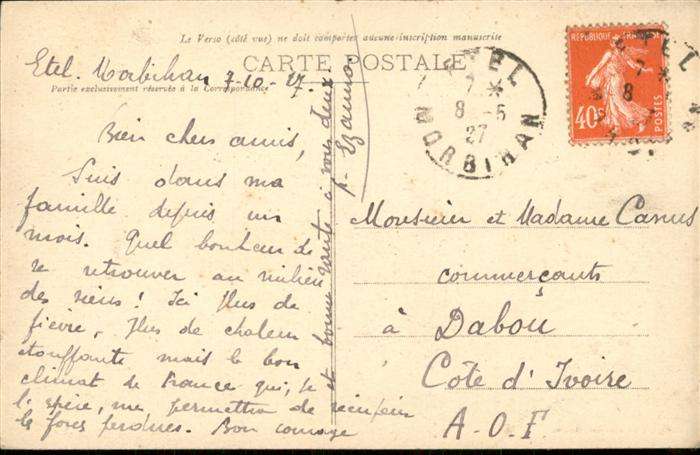 Le Verso (côté vue) ne doit comporter aucune inscription manuscrite
CARTE POSTALE
Partie exclusivement réservée à la Correspondance
Etel. Morbihan 7-10-27.
Bien chers amis,
Suis dans ma
famille depuis un
mois. Quel bonheur de
se retrouver au milieu
des siens! Ici plus de
fièvre, plus de chaleur
étouffante mais le bon
climat de France qui, je
l'espère, me permettra de récupérer
les forces perdues. Bon courage
et bonne santé à vous deux
ETEL
7 *
8 -
27
MORBIHAN
REPUBLIQUE FRANÇAISE
40c
POSTES
Monsieur et Madame Camus
commerçants
à Dabou
Côte d'Ivoire
A.O.F